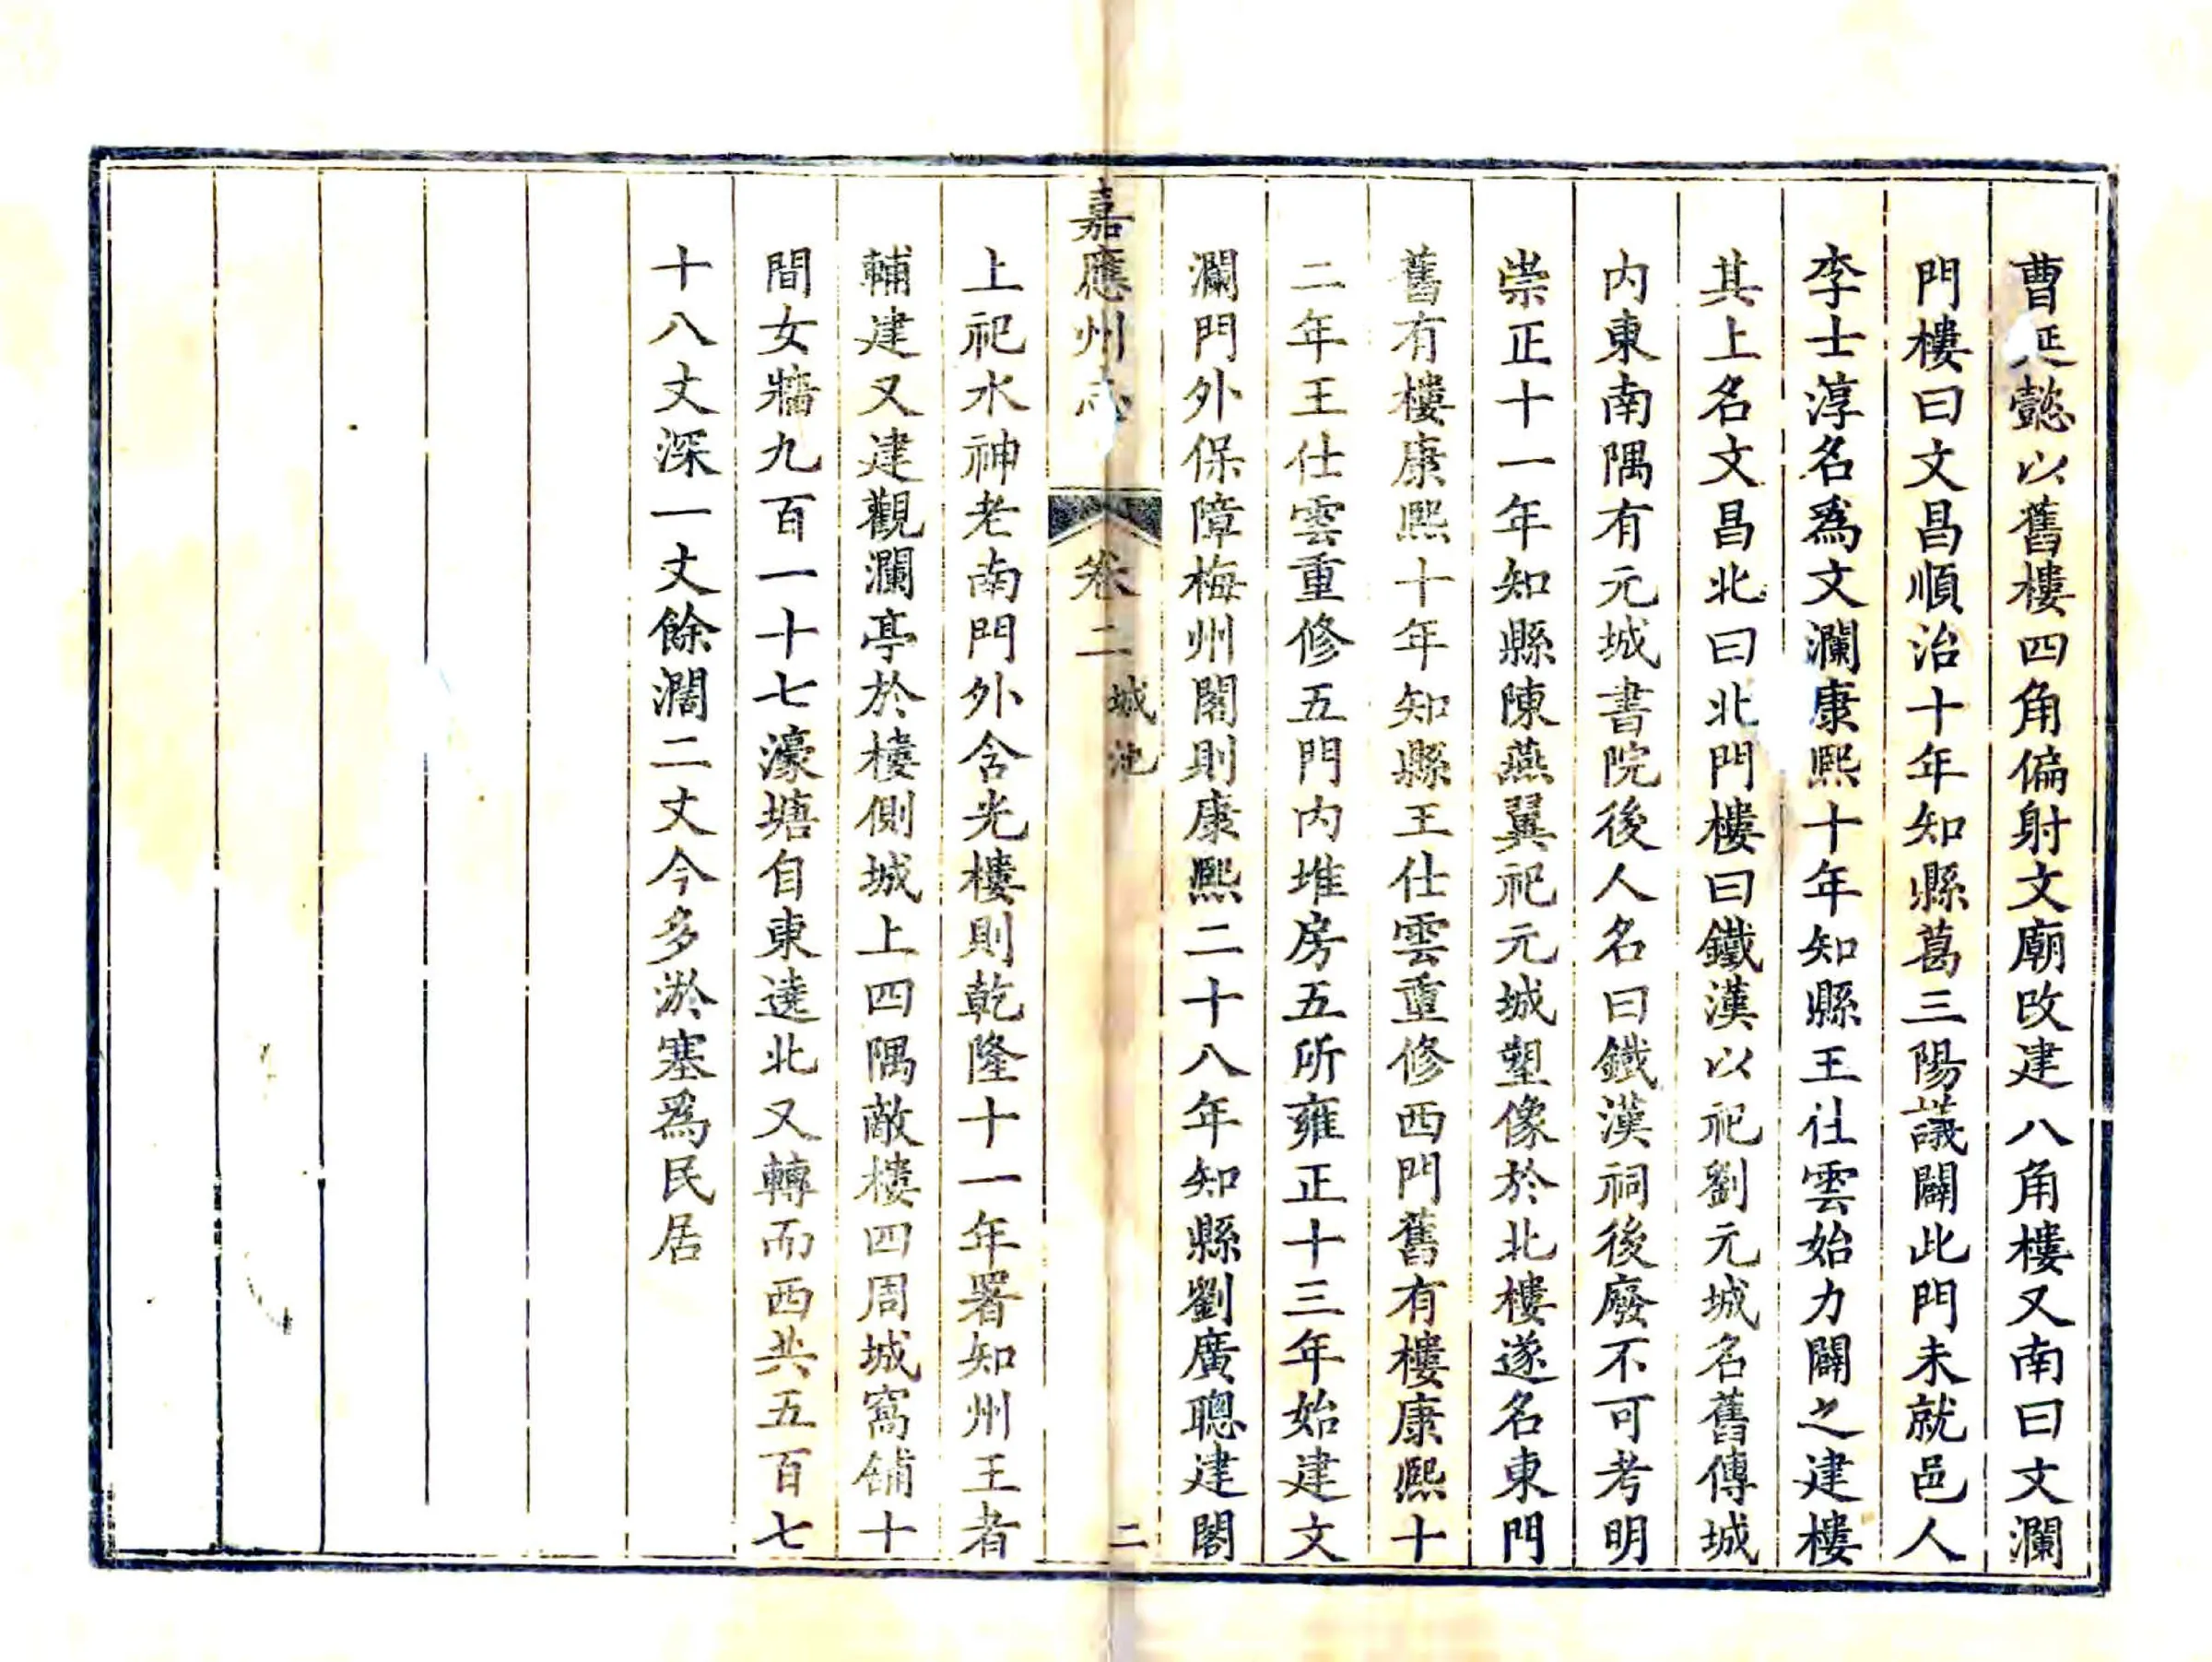 曹延懿以舊樓四角偏射文廟改建八角樓又南曰文瀾
門樓曰文昌順治十年知縣葛三陽議闢此門未就邑人
李士淳名爲文瀾康熙十年知縣王仕雲始力闢之建樓
其上名文昌北曰北門樓曰鐵漢以祀劉元城名舊傳城
内東南隅有元城書院後人名曰鐵漢祠後廢不可考明
崇正十一年知縣陳燕翼祀元城塑像於北樓遂名東門
舊有樓康熙十年知縣王仕雲重修西門舊有樓康熙十
二年王仕雲重修五門内堆房五所雍正十三年始建文
瀾門外保障梅州閣則康熙二十八年知縣劉廣聰建閣
嘉應州志 卷二 城池 二
上祀水神老南門外含光樓則乾隆十一年署知州王者
輔建又建觀瀾亭於樓側城上四隅敵樓四周城窩舖十
間女牆九百一十七濠塘自東遶北又轉而西共五百七
十八丈深一丈餘濶二丈今多淤塞爲民居